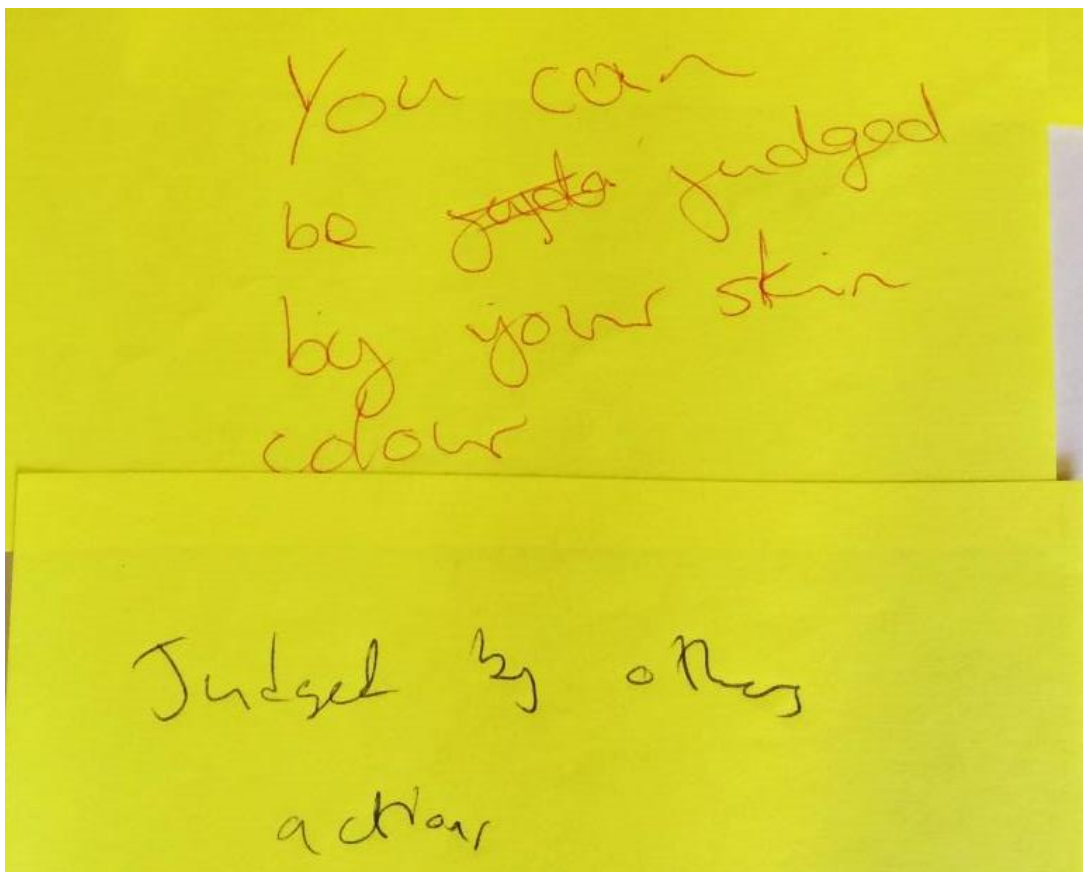 You can
be judged
by your skin
colour
Judged by others
actions